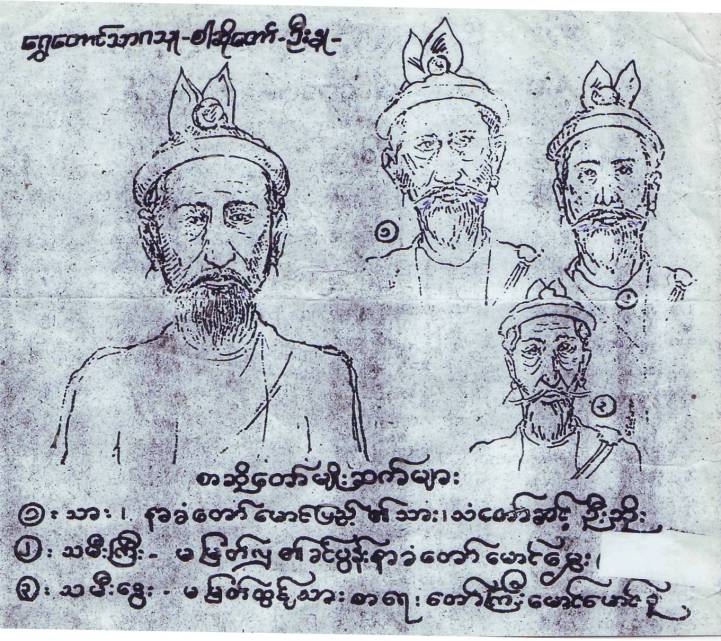 ရွှေတောင်သာဂသူ - စါဆိုတော် - ဦးနု -
၁
၂
၃
စာဆိုတော်မျိုးဆက်များ
၁ : သား ၊ နာခံတော် မောင်ပြည့် ၏ သား ၊ သံတော်ဆင့် ဦးဘိုး
၂ : သမီးကြီး - မမြတ်လှ ၏ ခင်ပွန်း နာခံတော် မောင်ရွှေး (
၃ : သမီးထွေး - မမြတ်ထွဋ် သား စာရေးတော်ကြီး မောင်မောင်